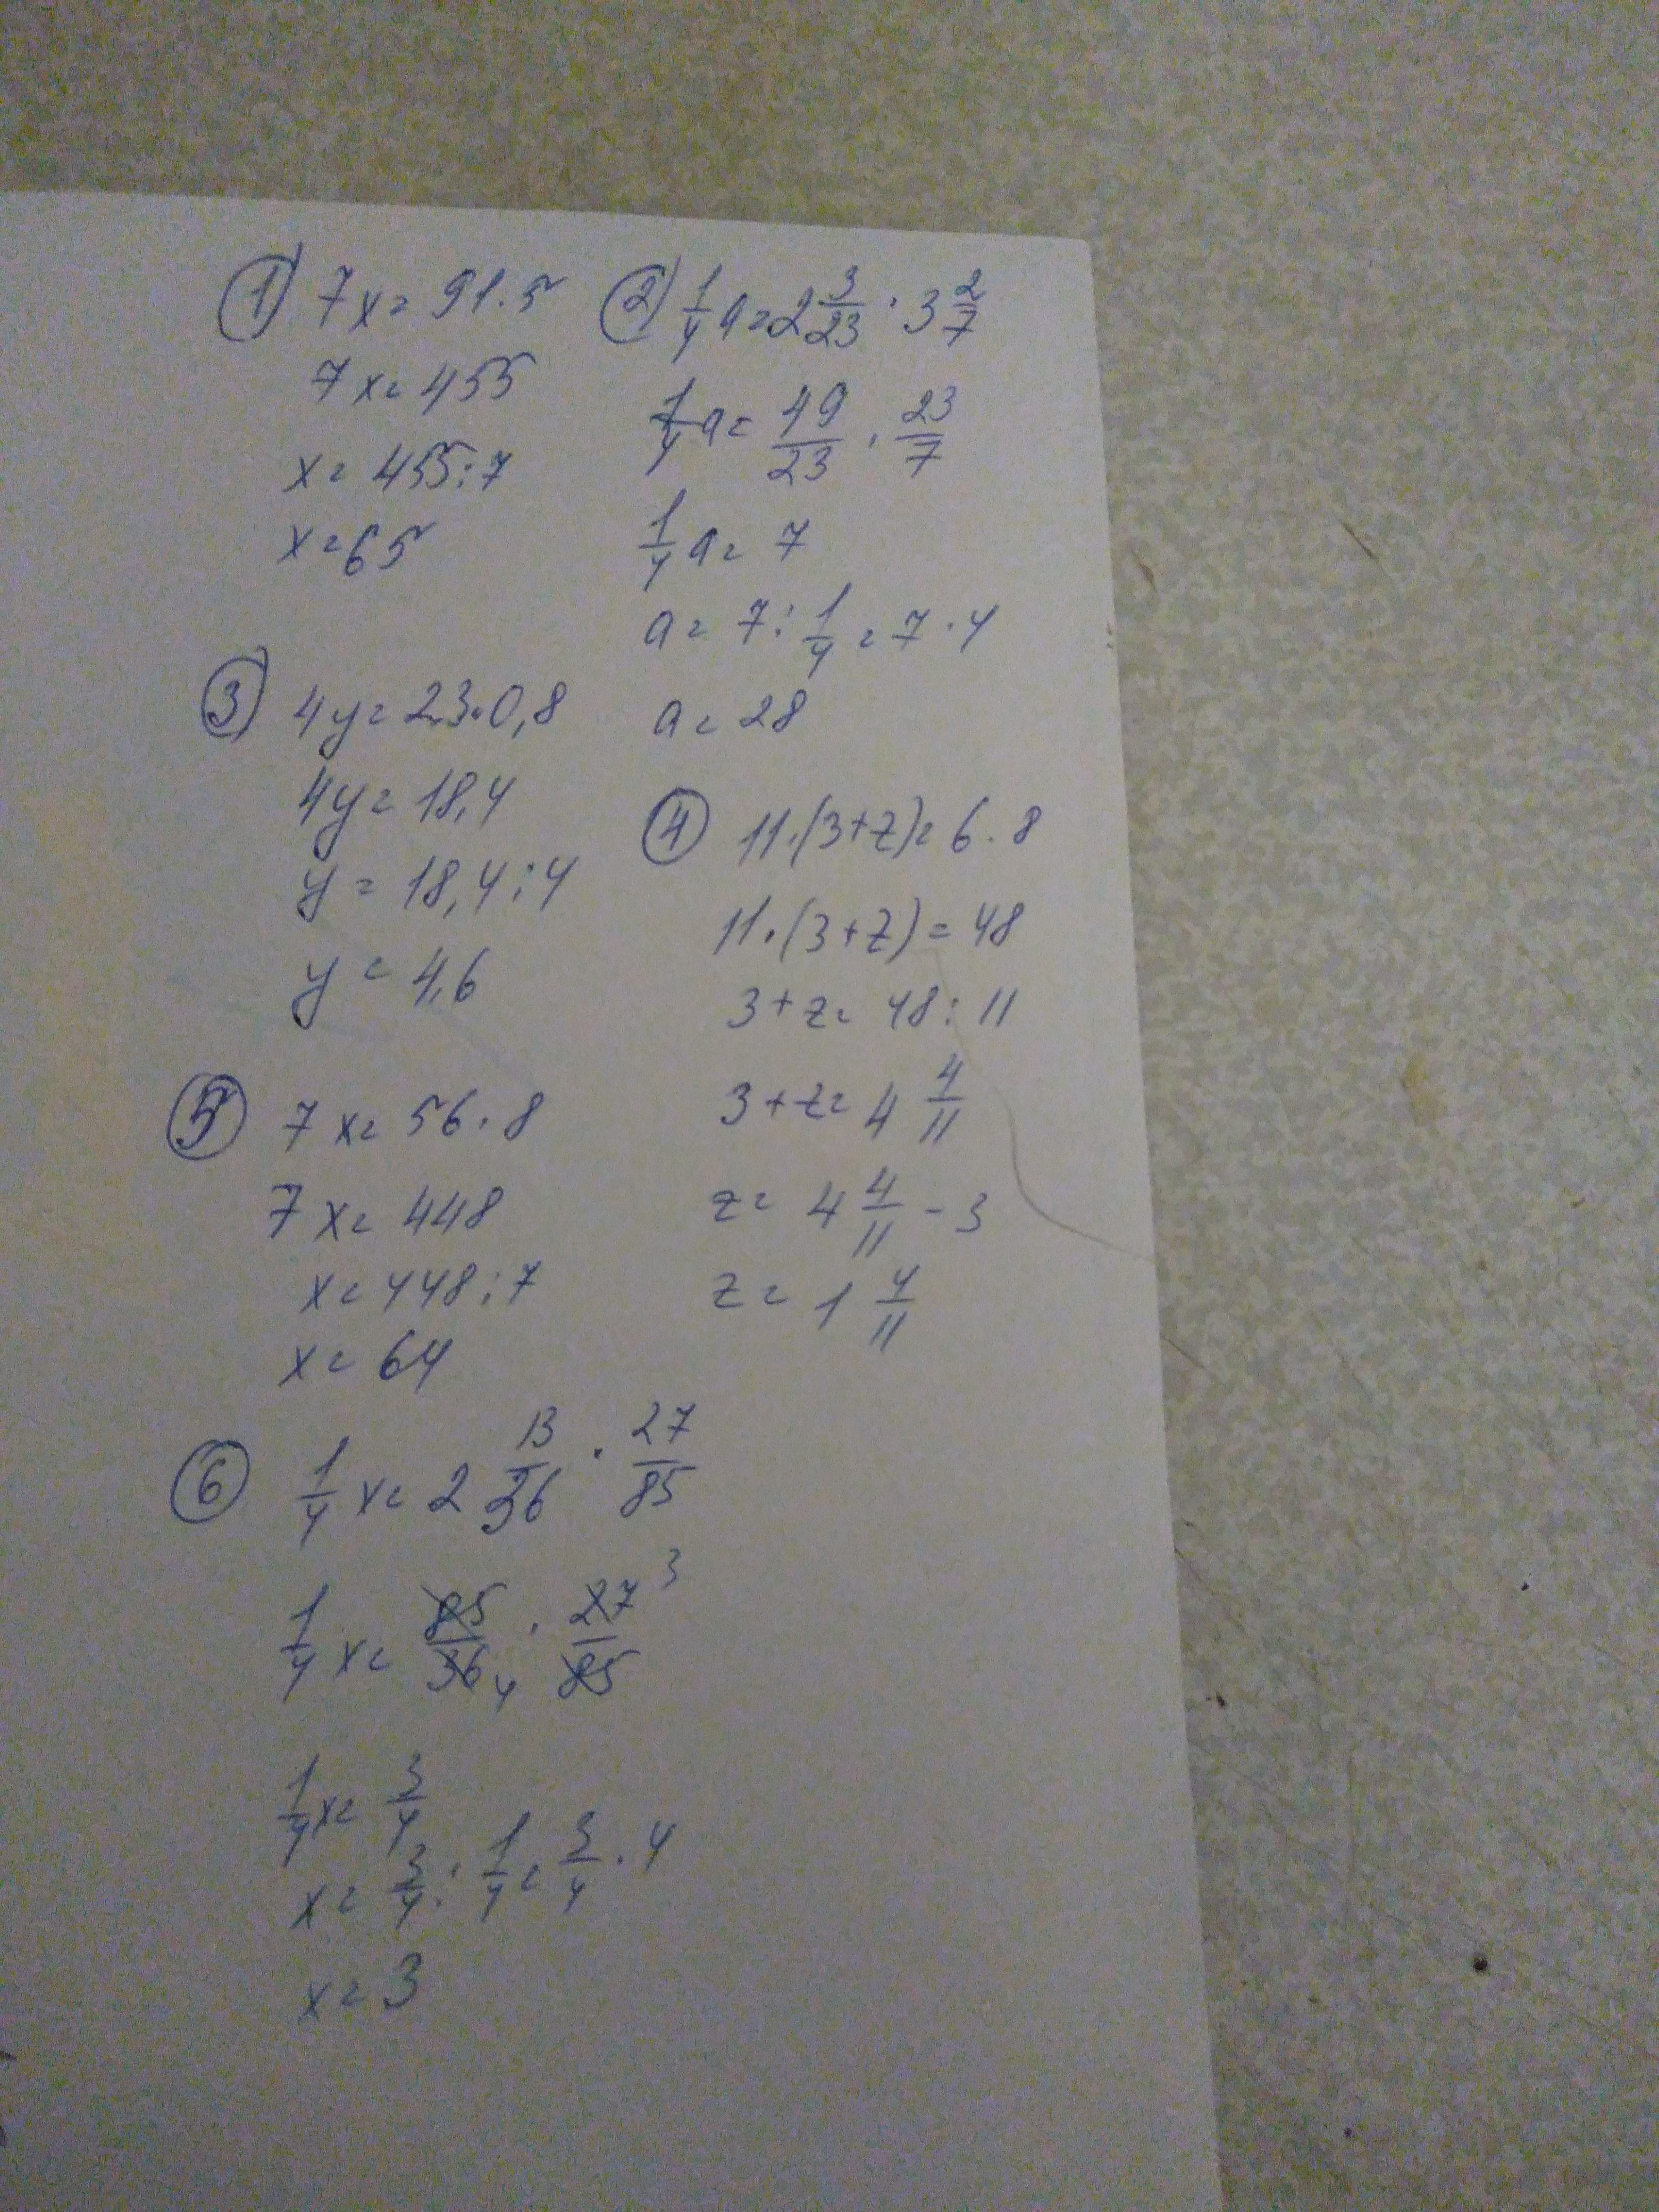 ① 7x = 91 · 5
7x = 455
x = 455 : 7
x = 65
② 1/4 a = 2 3/23 · 3 2/7
1/4 a = 49/23 · 23/7
1/4 a = 7
a = 7 : 1/4 = 7 · 4
a = 28
③ 4y = 23 · 0,8
4y = 18,4
y = 18,4 : 4
y = 4,6
④ 11 · (3 + z) = 6 · 8
11 · (3 + z) = 48
3 + z = 48 : 11
3 + z = 4 4/11
z = 4 4/11 - 3
z = 1 4/11
⑤ 7x = 56 · 8
7x = 448
x = 448 : 7
x = 64
⑥ 1/4 x = 2 13/36 · 27/85
1/4 x = 85/36 4 · 27 3/85
1/4 x = 3/4
x = 3/4 : 1/4 = 3/4 · 4
x = 3